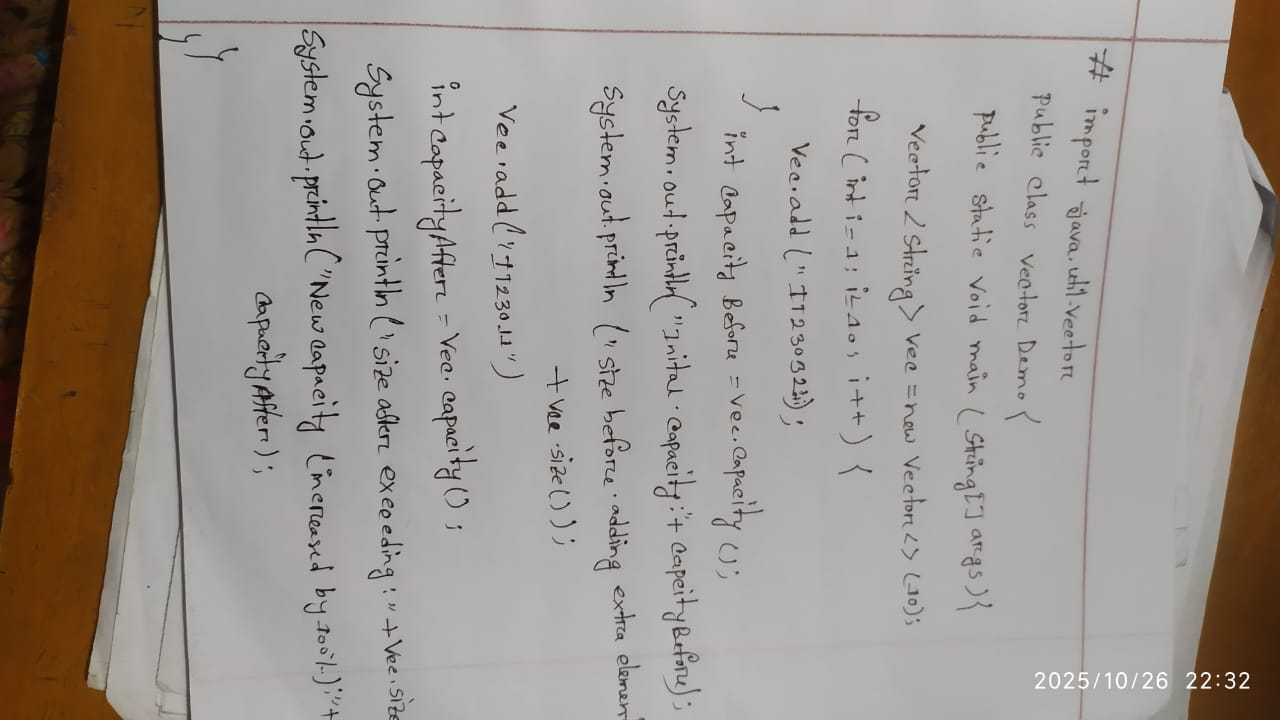 # import java.util.Vector
public class Vector Demo {
public static void main (String[] args) {
Vector <String> vec = new Vector<> (10);
for (int i = 1; i ≤ 10; i++) {
Vec.add ("IT23032"i);
}
int capacity Before = vec.capacity ();
System.out.println("Inital.capacity:"+ capacityBefore);
System.out.println ("size before.adding extra elemen
+ vec.size());
Vec.add("IT23011")
int capacityAfter = Vec.capacity();
System.out.println("size after exceeding:"+Vec.size
System.out.println("New capacity (increased by 100%):"+
capacityAfter);
} }
2025/10/26 22:32